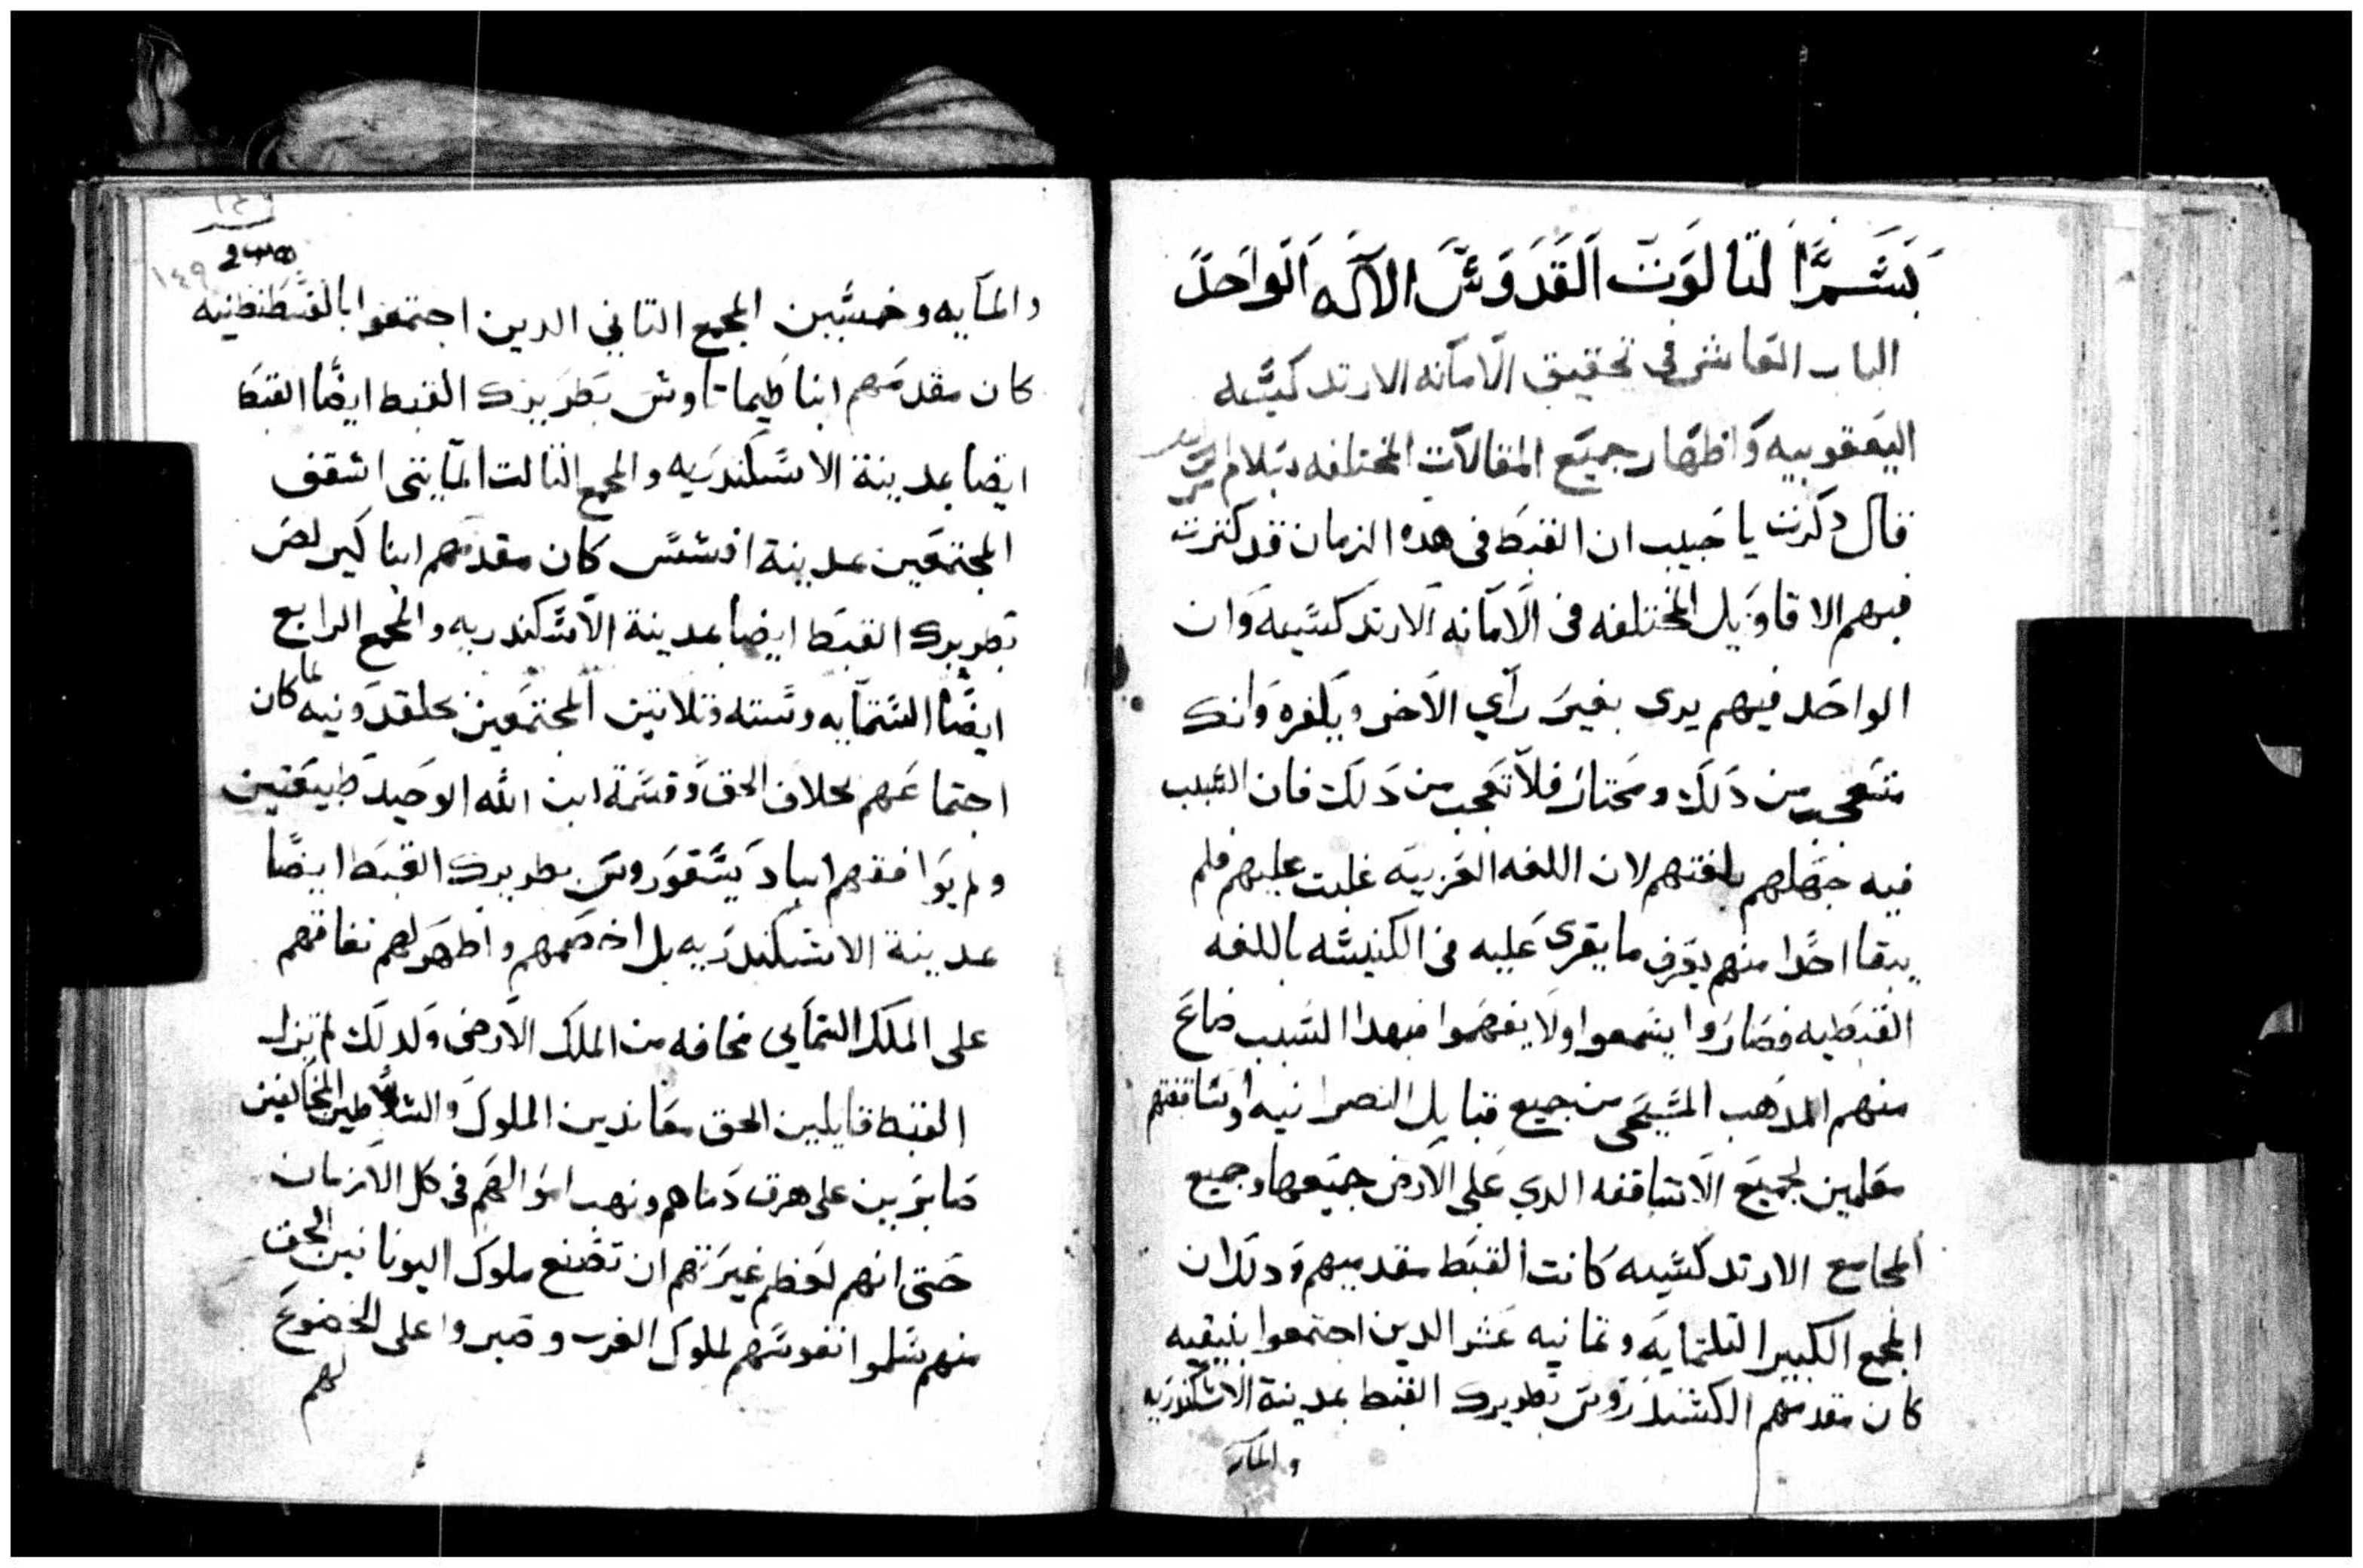 بسم التالوت القدوس الاله الواحد
الباب العاشر في تحقيق الامانه الارتدكسيه
اليعقوبيه واظهار جميع المقالات المختلفه بسلام
قال دكرت يا حبيب ان القبط فى هده الزمان قد كترت
فيهم الاقاويل المختلفه فى الامانه الارتدكسيه وان
الواحد فيهم يرى بغير راي الاخر ويكفره وانك
متعجب من دلك ومحتار فلا تعجب من دلك فان السبب
فيه جهلهم بلغتهم لان اللغه العربيه غلبت عليهم فلم
يبقا احدا منهم يعرف ما يقرى عليه فى الكنيسه باللغه
القبطيه فصاروا يسمعوا ولا يفهموا فبهدا السبب ضاع
منهم المدهب المسيحى من جميع قبايل النصرانيه اوساقفتهم
معلمين لجميع الاساقفه الدي على الارض جميعها وجميع
المجامع الارتدكسيه كانت القبط مقدميهم ودلك ان
المجمع الكبير التلتمايه وتمانيه عشر الدين اجتمعوا بنيقيه
كان مقدمهم الكسندروس بطريرك القبط بمدينة الاسكندريه
والمايه
٢٣٥
١٤٩
والمايه وخمسين المجمع التاني الدين اجتمعوا بالقسطنطنيه
كان مقدمهم انبا طيماتاوس بطريرك القبط ايضا القبط
ايضا بمدينة الاسكندريه والمجمع التالت المايتى اسقف
المجتمعين بمدينة افسس كان مقدمهم انبا كيرلص
بطريرك القبط ايضا بمدينة الاسكندريه والمجمع الرابع
ايضا الستمايه وسته وتلاتين المجتمعين بخلقدونيه لما كان
اجتماعهم بخلاف الحق وقسمة ابن الله الوحيد طبيعتين
ولم يوافقهم انبا ديسقوروس بطريرك القبط ايضا
بمدينة الاسكندريه بل اخصمهم واظهر لهم نفاقهم
على الملك السمايي مخافه من الملك الارضى ولدلك لم تزل
القبط قايلين الحق معاندين الملوك والسلاطين المخالفين
صابرين على هرق دماهم ونهب اموالهم فى كل الازمان
حتى انهم لعظم غيرتهم ان تضيع ملوك اليونانين الحق
منهم سلموا نفوسهم لملوك العرب وصبروا على الخضوع
لهم